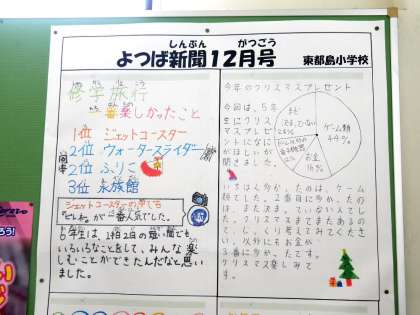 しんぶん がつごう
よつば新聞12月号 東都島小学校
修学旅行
一番楽しかったこと
1位 ジェットコースター
2位 ウォータースライダー
同率
2位 ふりこ
3位 水族館
ジェットコースターの中でも
が一番人気でした。
6年生は、1泊2日の短い間でも
いろいろなことをして、みんな楽
しむことができたんだなと思い
ました。
今年のクリスマスプレゼント
今回は、5年
生にクリス
マスプレゼ
ントになに
がほしいか
聞きました。
ゲーム類
44%
まだ
決まっていない
お金
16%
いちばん多かったのは、ゲーム
類でした。2番目に多かったの
は、まだ決まっていない人でし
た。クリスマスまでまだあるの
で、じっくり考えてみてくださ
い。以外にもお金が
3番に多かったです。
クリスマス楽しみで
す。